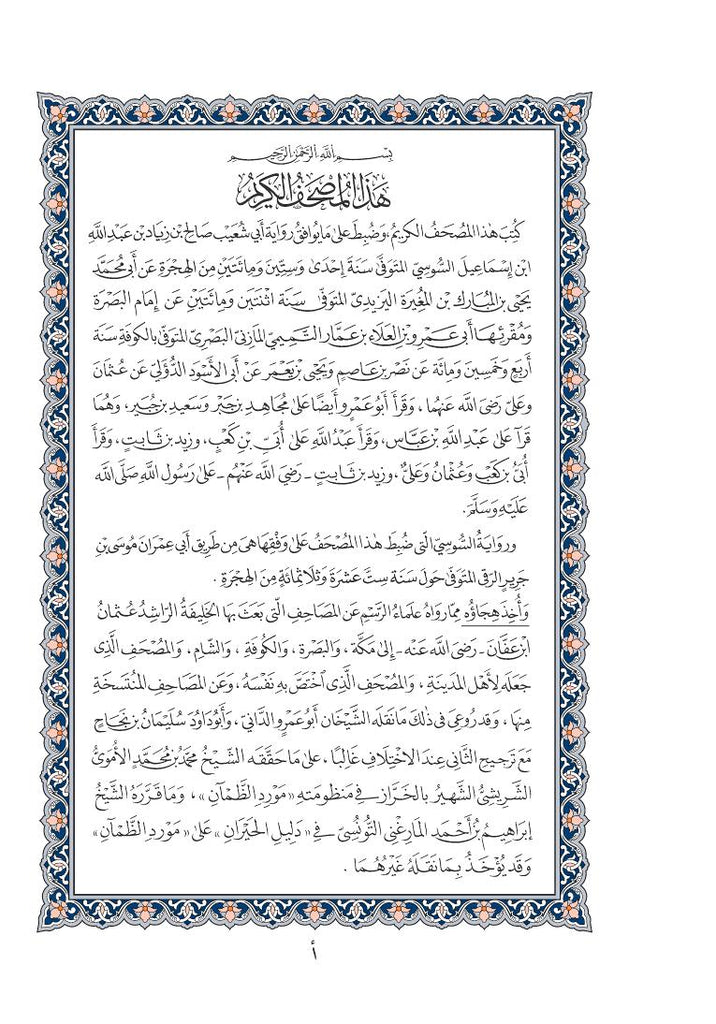 بِسْمِ اللَّهِ الرَّحْمَٰنِ الرَّحِيمِ
هَٰذَا المُصْحَفُ الكَرِيمُ
كُتِبَ هٰذا المُصْحَفُ الكريمُ، وَضُبِطَ عَلىٰ مَا يُوَافِقُ رِوَايَةَ أَبِي شُعَيْبٍ صَالِح بْنِ زِيَاد بْنِ عَبدِ اللَّهِ
ابْنِ إِسْمَاعِيلَ السُّوسِيِّ المُتَوَفَّىٰ سَنَةَ إِحْدَىٰ وَسِتِّينَ وَمِائَتَيْنِ مِنَ الهِجْرَةِ عَن أَبِي مُحَمَّدٍ
يَحْيَى بْنِ المُبَارَكِ بْنِ المُغِيرَةِ اليَزِيدِيِّ المُتَوَفَّىٰ سَنَةَ اثْنَتَيْنِ وَمِائَتَيْنِ عَنْ إِمَامِ البَصْرَةِ
وَمُقْرِئِهَا أَبِي عَمْرِو بْنِ العَلَاءِ بْنِ عَمَّارٍ التَّمِيمِيِّ المَازِنِيِّ البَصْرِيِّ المُتَوَفَّىٰ بِالكُوفَةِ سَنَةَ
أَرْبَعٍ وَخَمْسِينَ وَمِائَة عَن نَصْرِ بْنِ عَاصِمٍ وَيَحْيَى بْنِ يَعْمَر عَنْ أَبِي الأَسْوَدِ الدُّؤَلِيِّ عَن عُثمَانَ
وعَلِيٍّ رَضِيَ اللَّه عَنهُمَا ، وَقَرَأَ أَبُو عَمْرٍو أَيضًا عَلىٰ مُجَاهِدِ بْنِ جَبْرٍ وَسَعِيدِ بْنِ جُبَيْرٍ، وَهُمَا
قَرَآ عَلىٰ عَبدِ اللَّهِ بْنِ عَبَّاسٍ، وَقَرَأَ عَبْدُ اللَّهِ عَلىٰ أُبَيِّ بْنِ كَعْبٍ، وزيدِ بن ثَابِتٍ، وَقَرَأَ
أُبَيُّ بْنُ كَعْبٍ وَعُثْمَانُ وَعَلِيٌّ، وزيد بن ثَابِتٍ - رَضِيَ اللَّه عَنْهُم - عَلىٰ رَسُولِ اللَّهِ صَلَّى اللَّه
عَلَيْهِ وَسَلَّمَ.
ورِوَايَةُ السُّوسِيِّ الَّتِي ضُبِطَ هٰذا المُصْحَفُ عَلىٰ وَفْقِهَا هِيَ مِن طَرِيقِ أَبِي عِمْرَانَ مُوسَى بْنِ
جَرِيرٍ الرَّقِيِّ المُتَوَفَّىٰ حَولَ سَنَةِ سِتَّ عَشْرَةَ وَثَلَاثِمِائَةٍ مِنَ الهِجْرَةِ .
وَأُخِذَ هِجَاؤُه مِمَّا رَوَاهُ عُلَمَاءُ الرَّسْمِ عَنِ المَصَاحِفِ الَّتِي بَعَثَ بِهَا الخَلِيفَةُ الرَّاشِدُ عُثْمَانُ
ابْنُ عَفَّانَ - رَضِيَ اللَّه عَنْه - إِلىٰ مَكَّةَ ، وَالبَصْرَةِ ، وَالكُوفَةِ ، وَالشَّامِ ، وَالمُصْحَفِ الَّذِي
جَعَلَهُ لِأَهْلِ المَدِينَةِ ، وَالمُصْحَفِ الَّذِي اخْتَصَّ بِهِ نَفْسَهُ ، وَعَنِ المَصَاحِفِ المُنْتَسَخَةِ
مِنهَا ، وَقَد رُوعِيَ فِي ذٰلِكَ مَا نَقَلَه الشَّيْخَان أَبُو عَمْرٍو الدَّانِيّ ، وَأَبُو دَاوُد سُلَيْمَانُ بْنُ نَجَاحٍ
مَعَ تَرْجِيحِ الثَّانِي عِندَ الاخْتِلَافِ غَالِبًا ، عَلىٰ مَا حَقَّقَه الشَّيخُ مُحَمَّدُ بْنُ مُحَمَّدٍ الأُمَوِيُّ
الشَّرِيشِيُّ الشَّهِيرُ بِالخَرَّازِ فِي مَنظُومَتِهِ «مَوْرِدِ الظَّمْآنِ» ، وَمَا قَرَّرَهُ الشَّيْخُ
إبرَاهِيمُ بْنُ أَحْمَدَ المَارِغْنِيّ التُّونُسِيّ فِي «دَلِيلِ الحَيْرَانِ» عَلىٰ «مَوْرِدِ الظَّمْآنِ»
وَقَد يُؤْخَذُ بِمَا نَقَلَهُ غَيْرُهُمَا .
أ